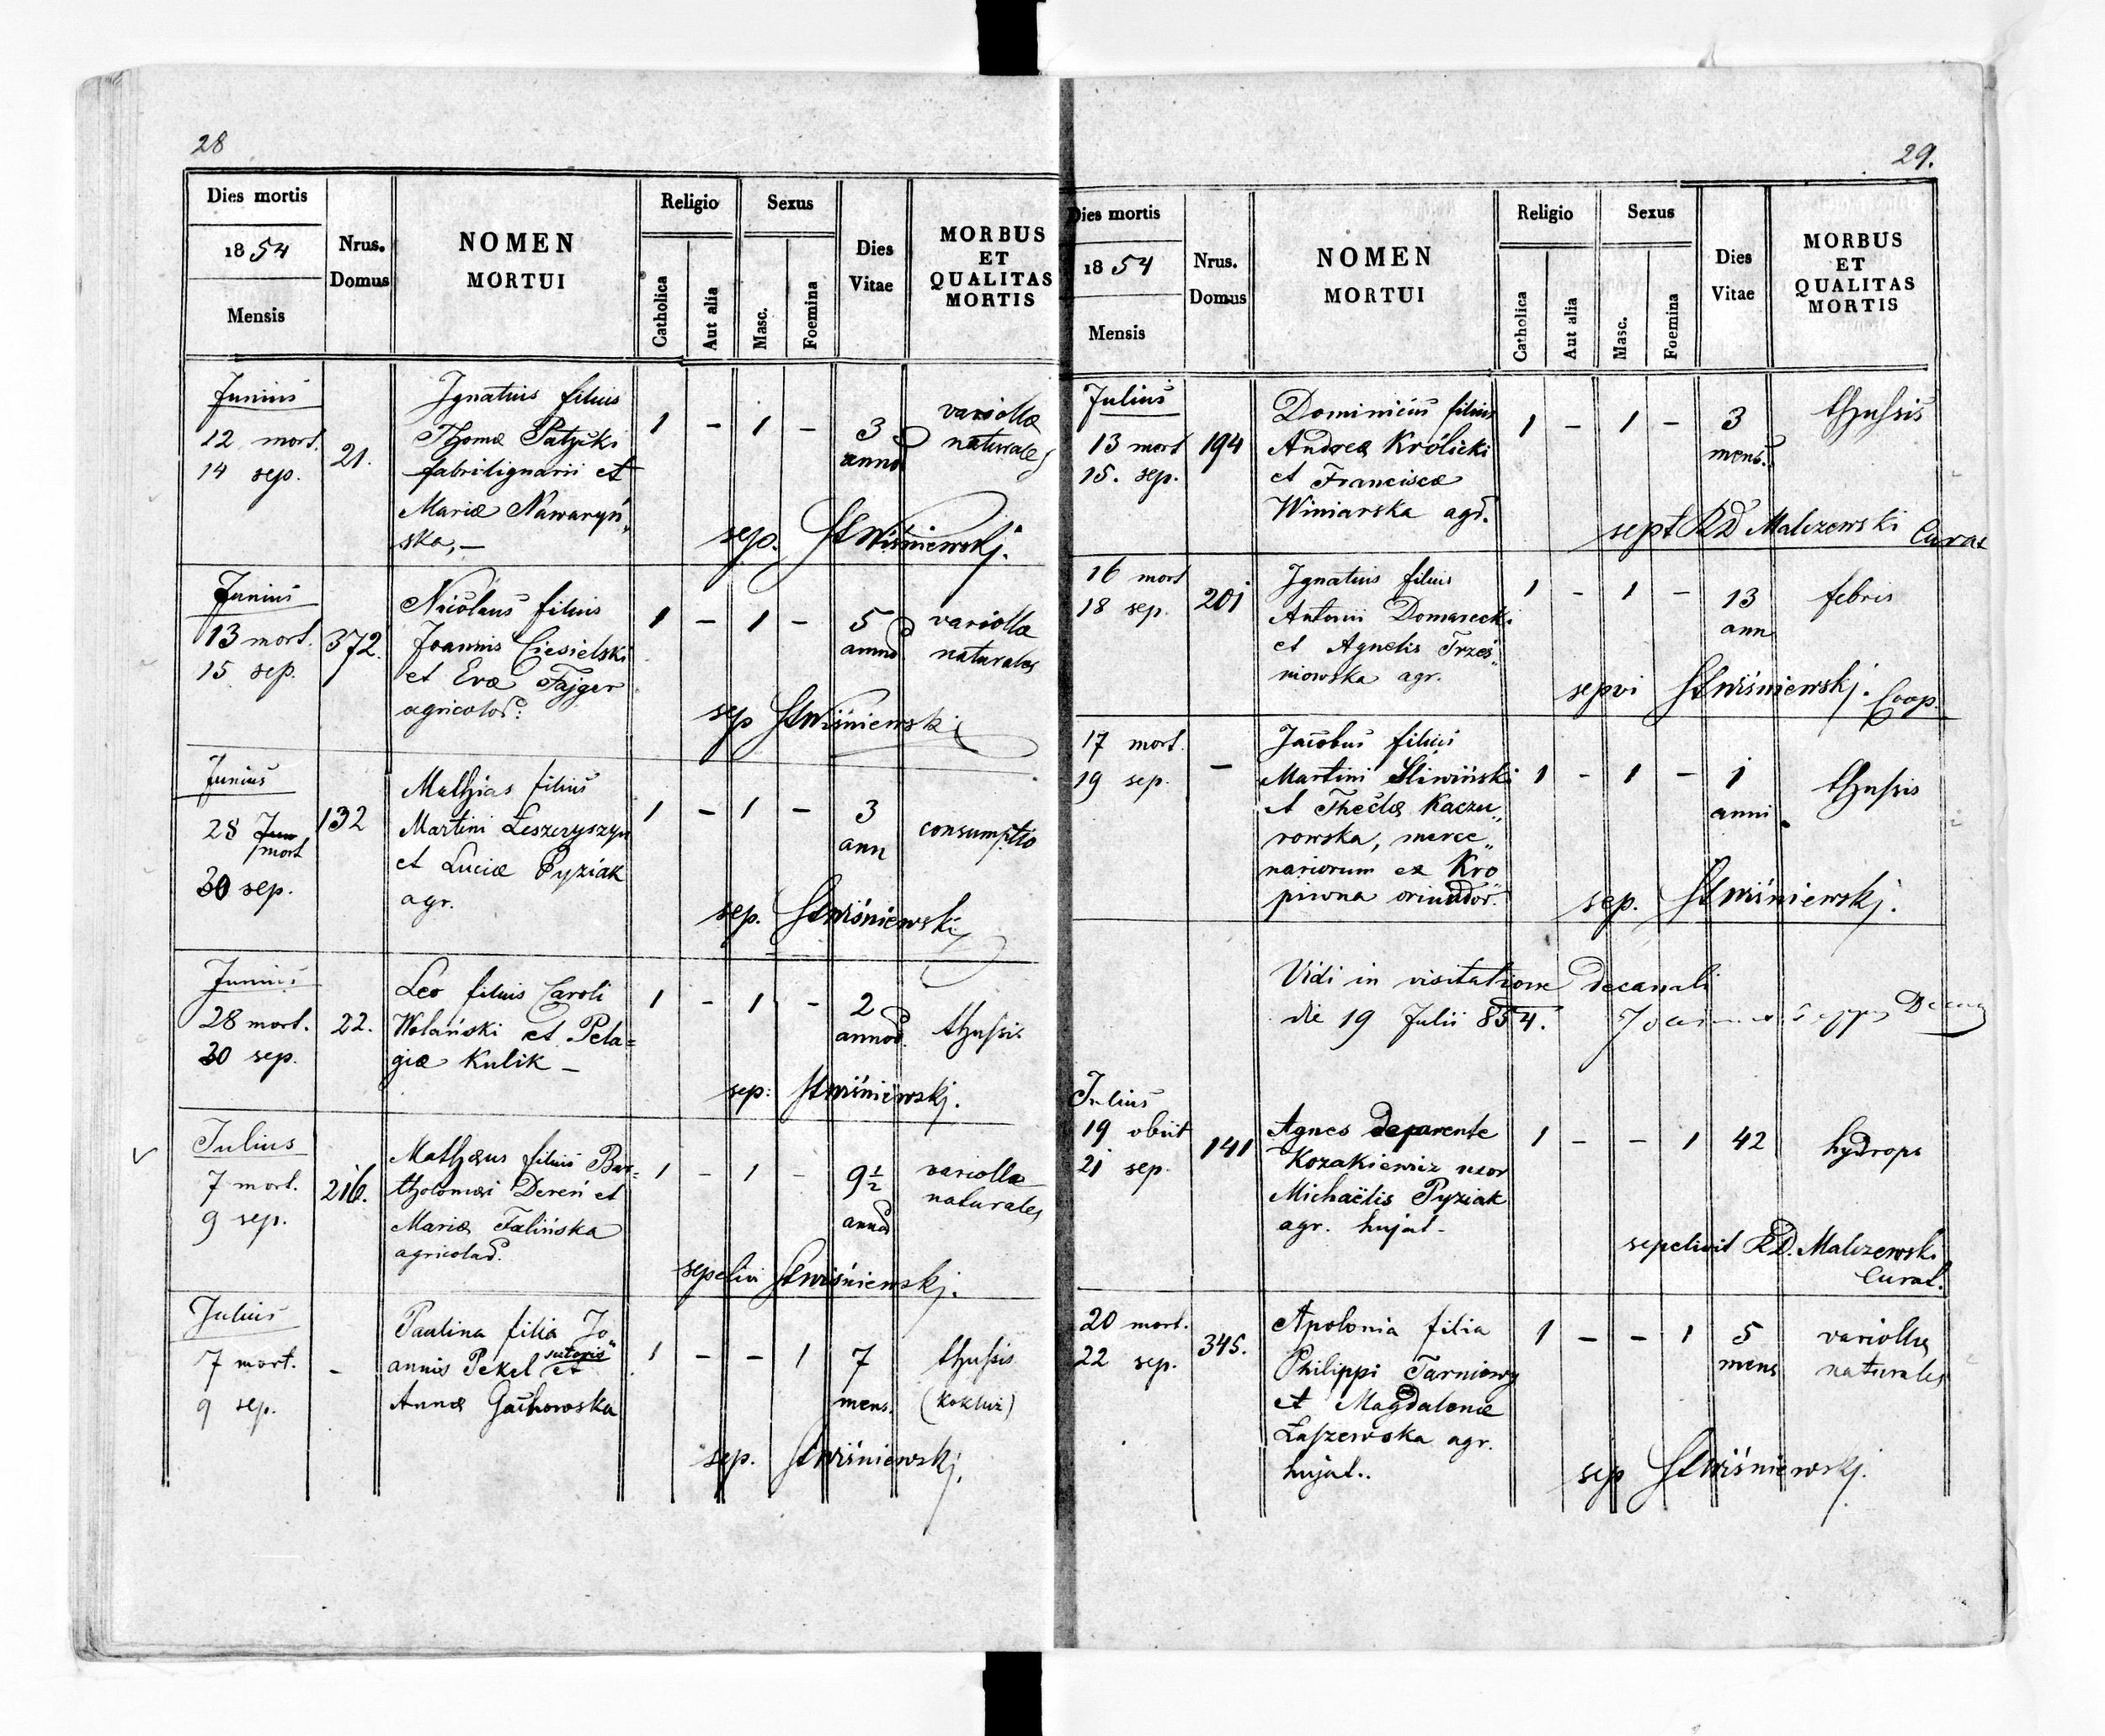 28
Dies mortis
1854
Mensis
Nrus.
Domus
NOMEN
MORTUI
Religio
Catholica
Aut alia
Sexus
Masc.
Foemina
Dies
Vitae
MORBUS
ET
QUALITAS
MORTIS
Junius
12 mort.
14 sep.
21.
Ignatius filius
Thomæ Patycki
fabrilignarii et
Mariæ Nawaryń„
ska,—
1 - 1 -
3
annor
variolla
naturales
sep. StWiśniewskj.
Junius
13 mort.
15 sep.
372.
Nicolaus filius
Joannis Ciesielski
et Evæ Fajger
agricolar:
1 - 1 -
5
annor
variolla
naturales
sep StWiśniewski
Junius
28
mort
30 sep.
132
Mathias filius
Martini Leszczyszyn
et Luciæ Pyziak
agr.
1 - 1 -
3
ann
consumptio
sep. StWiśniewski
Junius
28 mort.
30 sep.
22.
Leo filius Caroli
Wolański et Pela=
giæ Kulik —
1 - 1 -
2
annor.
thussis
sep: StWiśniewskj.
Julius
7 mort.
9 sep.
216.
Mathæus filius Bar=
tholomæi Dereń et
Mariæ Falińska
agricolar.
1 - 1 -
9½
annor
variolla
naturales
sepelivi StWiśniewskj.
Julius
7 mort.
9 sep.
-
Paulina filia Jo„
annis Pekel sutoris et
Annæ Gachowska
1 - - 1
7
mens.
thussis
(Kokluz)
sep. StWiśniewskj.
29.
Dies mortis
1854
Mensis
Nrus.
Domus
NOMEN
MORTUI
Religio
Catholica
Aut alia
Sexus
Masc.
Foemina
Dies
Vitae
MORBUS
ET
QUALITAS
MORTIS
Julius
13 mort
15. sep.
194
Dominicus filius
Andreæ Królicki
et Franciscæ
Winiarska agr.
1 - 1 -
3
mens.
thussis
sept RD Malczewski Curat
16 mort
18 sep.
201
Ignatius filius
Antonii Domarecki
et Agnetis Trześ„
niowska agr.
1 - 1 -
13
ann
febris
sepvi StWiśniewskj. Coop.
17 mort.
19 sep.
-
Jacobus filius
Martini Sliwiński
et Theclæ Kaczu„
rowska, merce„
nariorum ex Kro
piwna oriundor.
1 - 1 -
1
anni
thussis
sep. StWiśniewskj.
Vidi in visitatione decanali
die 19 Julii 854.
Julius
19 obiit
21 sep.
141
Agnes deparente
Kozakiewicz uxor
Michaëlis Pyziak
agr. hujat-
1 - - 1
42
hydrops
sepelivit RD. Malczewski
Curat.
20 mort.
22 sep.
345.
Apolonia filia
Philippi Tarniowy
et Magdalenæ
Łaszewska agr.
hujat..
1 - - 1
5
mens
variolla
naturales
sep StWiśniewskj.